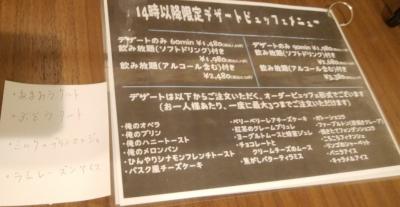 14時以降限定デザートビュッフェメニュー
デザートのみ 60min ¥1,480
飲み放題(ソフトドリンク)付き
¥1,980
飲み放題(アルコール含む)付き
¥2,480
デザートのみ 90min ¥1,980
飲み放題(ソフトドリンク)付き
飲み放題(アルコール含む)付き
デザートは以下からご注文いただき、オーダービュッフェ形式でございます
(お一人様あたり、一度に最大3つまでご注文いただけます)
・俺のオペラ
・俺のプリン
・俺のハニートースト
・俺のメロンパン
・ひんやりシナモンフレンチトースト
・バスク風チーズケーキ
・ベリーベリーレアチーズケーキ
・紅茶のクレームブリュレ
・ヨーグルトムースと蜂蜜ジュレ
・チョコレートと
クリームチーズのムース
・焦がしバターティラミス
・ガトーショコラ
・バニラアイス
・キャラメルアイス
・ラムレーズンアイス